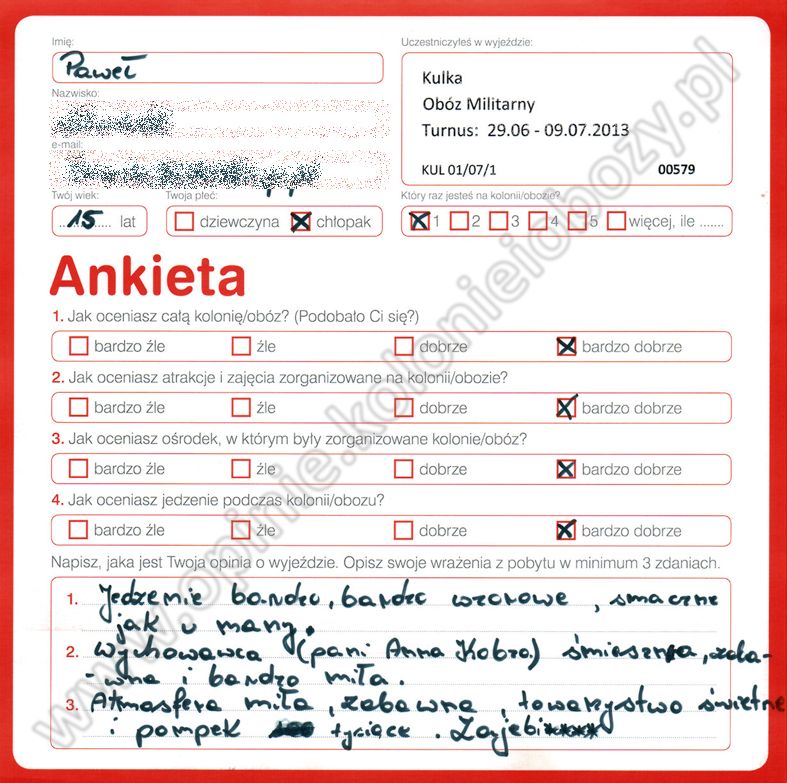 Imię:
Paweł
Nazwisko:
e-mail:
Uczestniczyłeś w wyjeździe:
Kulka
Obóz Militarny
Turnus: 29.06 - 09.07.2013
KUL 01/07/1 00579
Twój wiek:
15 lat
Twoja płeć:
dziewczyna chłopak
Który raz jesteś na kolonii/obozie?
1 2 3 4 5 więcej, ile .......
Ankieta
1. Jak oceniasz całą kolonię/obóz? (Podobało Ci się?)
bardzo źle źle dobrze bardzo dobrze
2. Jak oceniasz atrakcje i zajęcia zorganizowane na kolonii/obozie?
bardzo źle źle dobrze bardzo dobrze
3. Jak oceniasz ośrodek, w którym były zorganizowane kolonie/obóz?
bardzo źle źle dobrze bardzo dobrze
4. Jak oceniasz jedzenie podczas kolonii/obozu?
bardzo źle źle dobrze bardzo dobrze
Napisz, jaka jest Twoja opinia o wyjeździe. Opisz swoje wrażenia z pobytu w minimum 3 zdaniach.
1. Jedzenie bardzo, bardzo wzorowe, smaczne
jak u mamy.
2. Wychowawca (pani Anna Kobra) śmieszna, zaba-
-wna i bardzo miła.
3. Atmosfera miła, zabawna, towarzystwo świetne
i pompek tysiące. Zajebi****
www.opinie.kolonieiobozy.pl